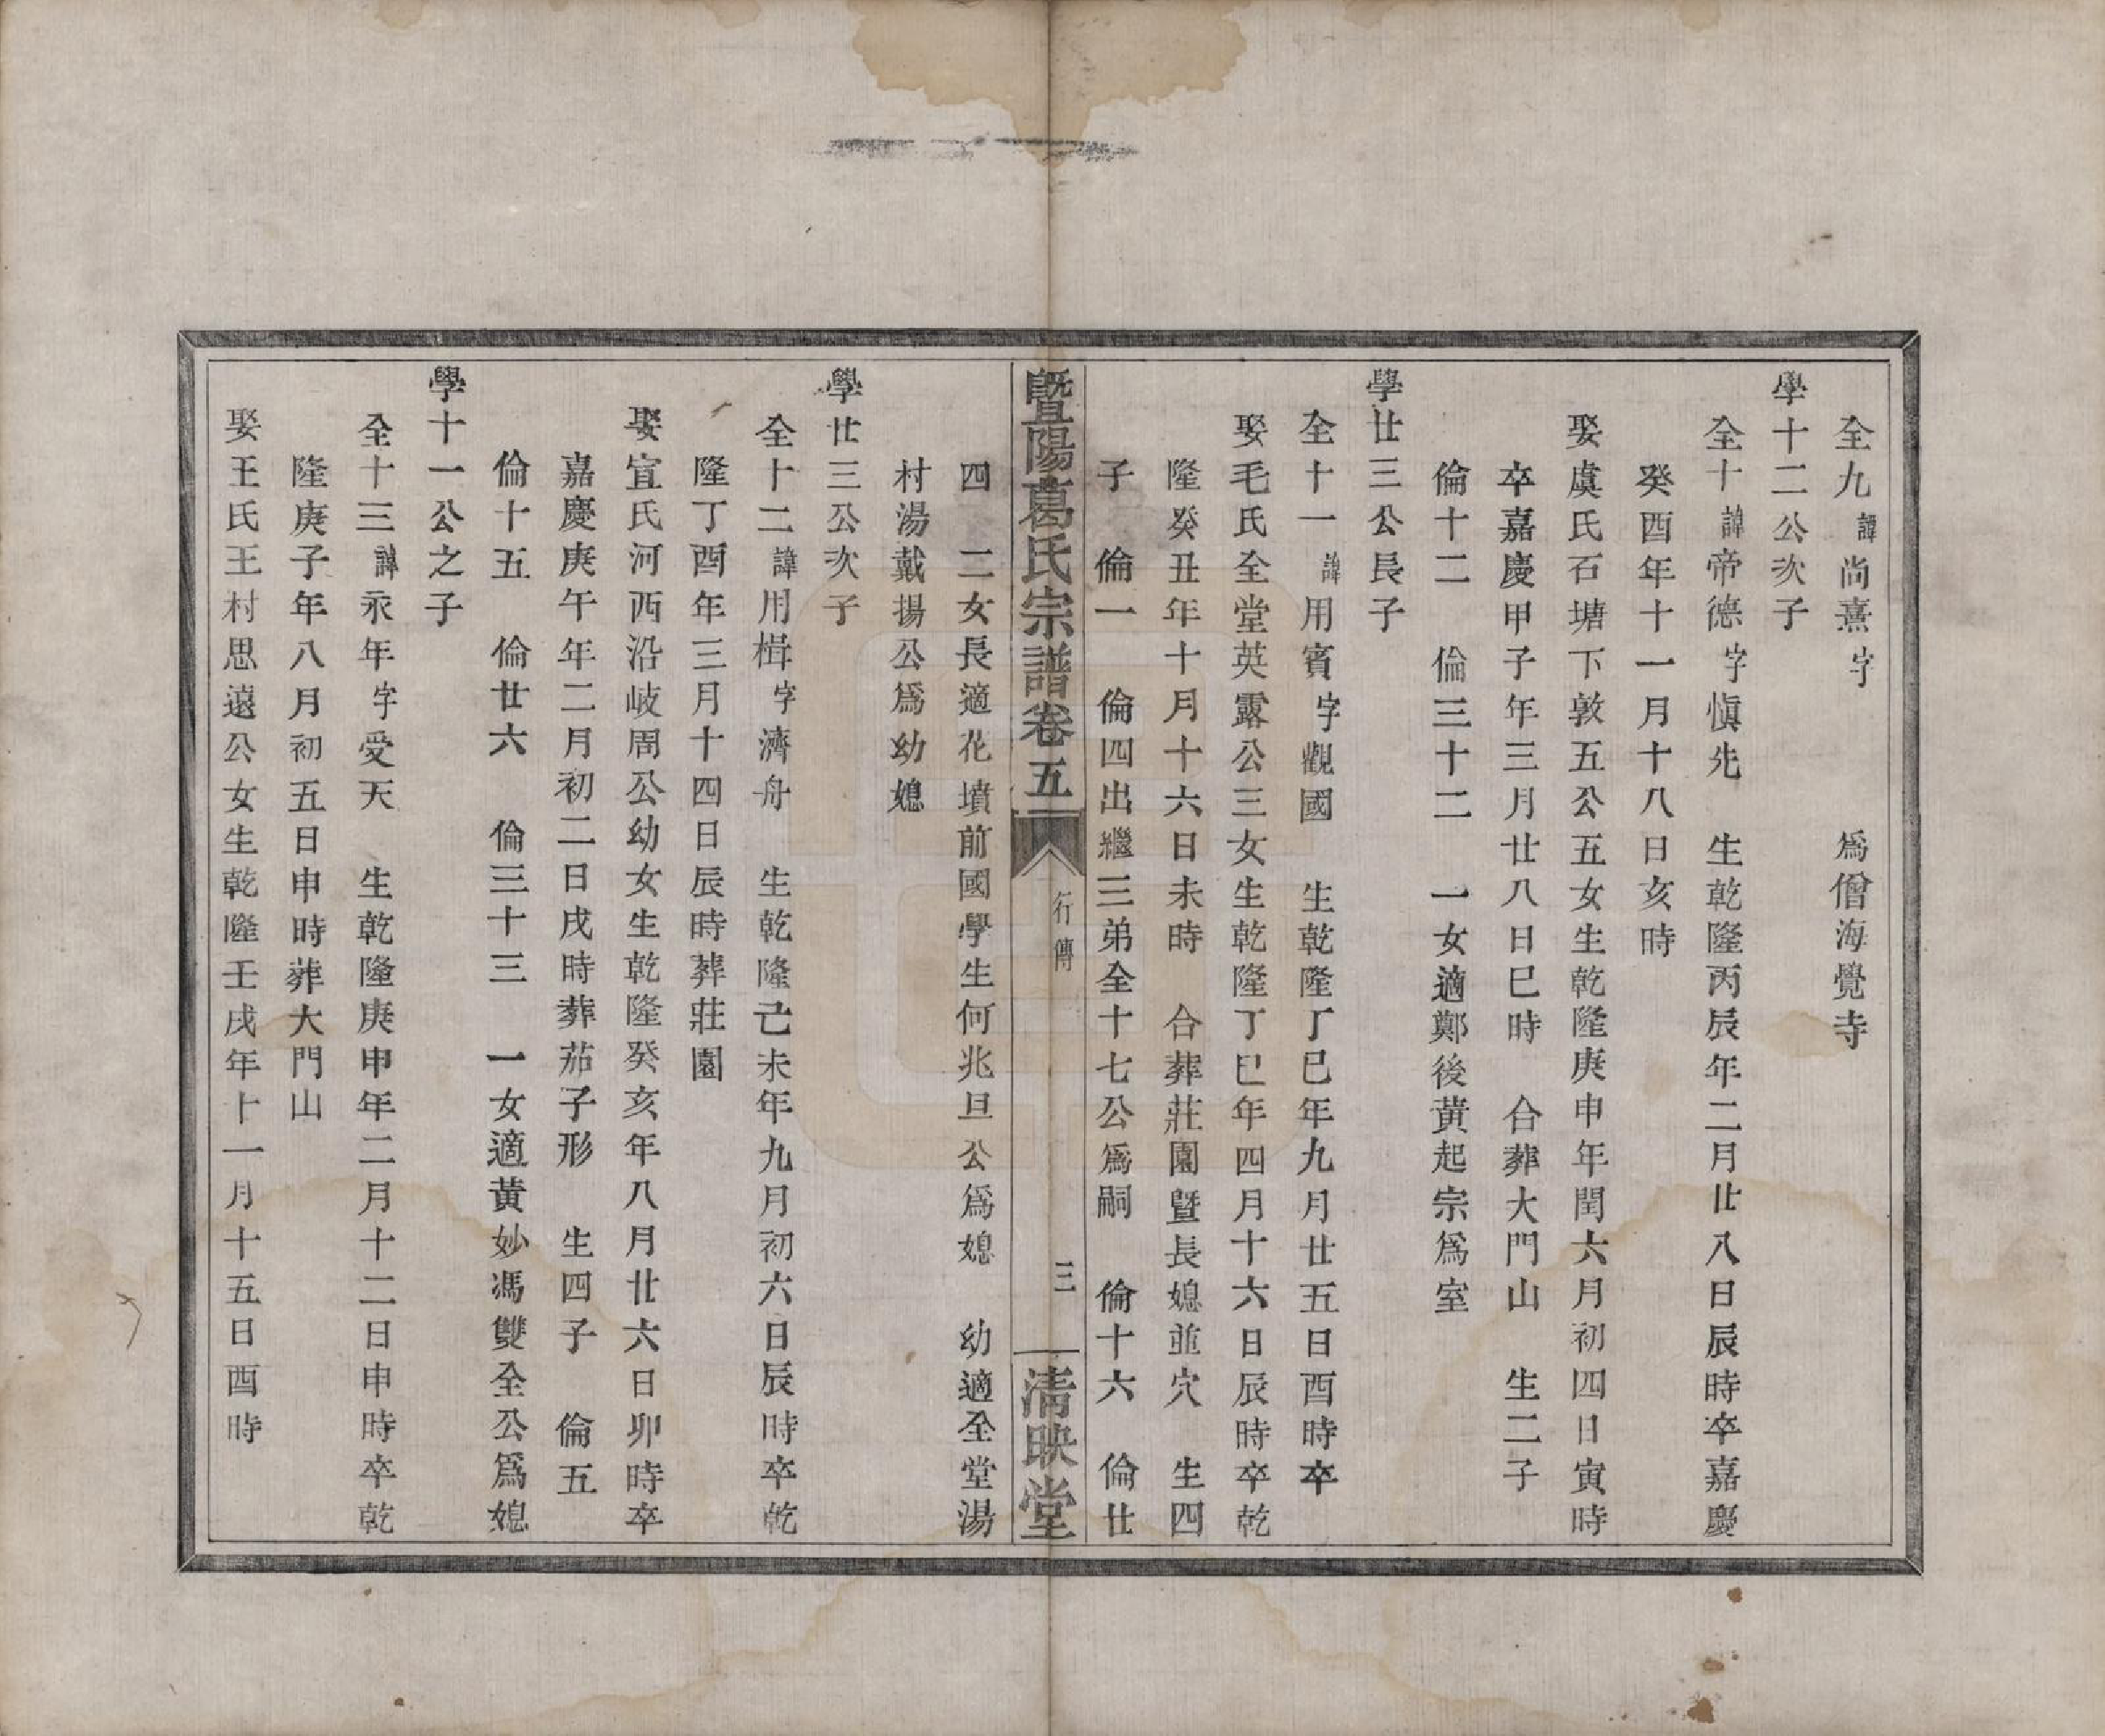 全九諱尚熹字　為僧海覺寺
學十二公次子
全十諱帝德字愼先　生乾隆丙辰年二月廿八日辰時卒嘉慶
癸酉年十一月十八日亥時
娶虞氏石塘下敦五公五女生乾隆庚申年閏六月初四日寅時
卒嘉慶甲子年三月廿八日巳時　合葬大門山　生二子
倫十二　倫三十二　一女適鄭後黃起宗爲室
學廿三公長子
全十一諱用賓字觀國　生乾隆丁巳年九月廿五日酉時卒
娶毛氏全堂英露公三女生乾隆丁巳年四月十六日辰時卒乾
隆癸丑年十月十六日未時　合葬莊園曁長媳並穴　生四
子　倫一　倫四出繼三弟全十七公爲嗣　倫十六　倫廿
曁陽葛氏宗譜卷五　行傳　三　清映堂
四　二女長適花墳前國學生何兆旦公爲媳　幼適全堂湯
村湯戴揚公爲幼媳
學廿三公次子
全十二諱用楫字濟舟　生乾隆己未年九月初六日辰時卒乾
隆丁酉年三月十四日辰時葬莊園
娶宣氏河西沿岐周公幼女生乾隆癸亥年八月廿六日卯時卒
嘉慶庚午年二月初二日戌時葬茄子形　生四子　倫五
倫十五　倫廿六　倫三十三　一女適黃妙馮雙全公爲媳
學十一公之子
全十三諱永年字受天　生乾隆庚申年二月十二日申時卒乾
隆庚子年八月初五日申時葬大門山
娶王氏王村思遠公女生乾隆壬戌年十一月十五日酉時